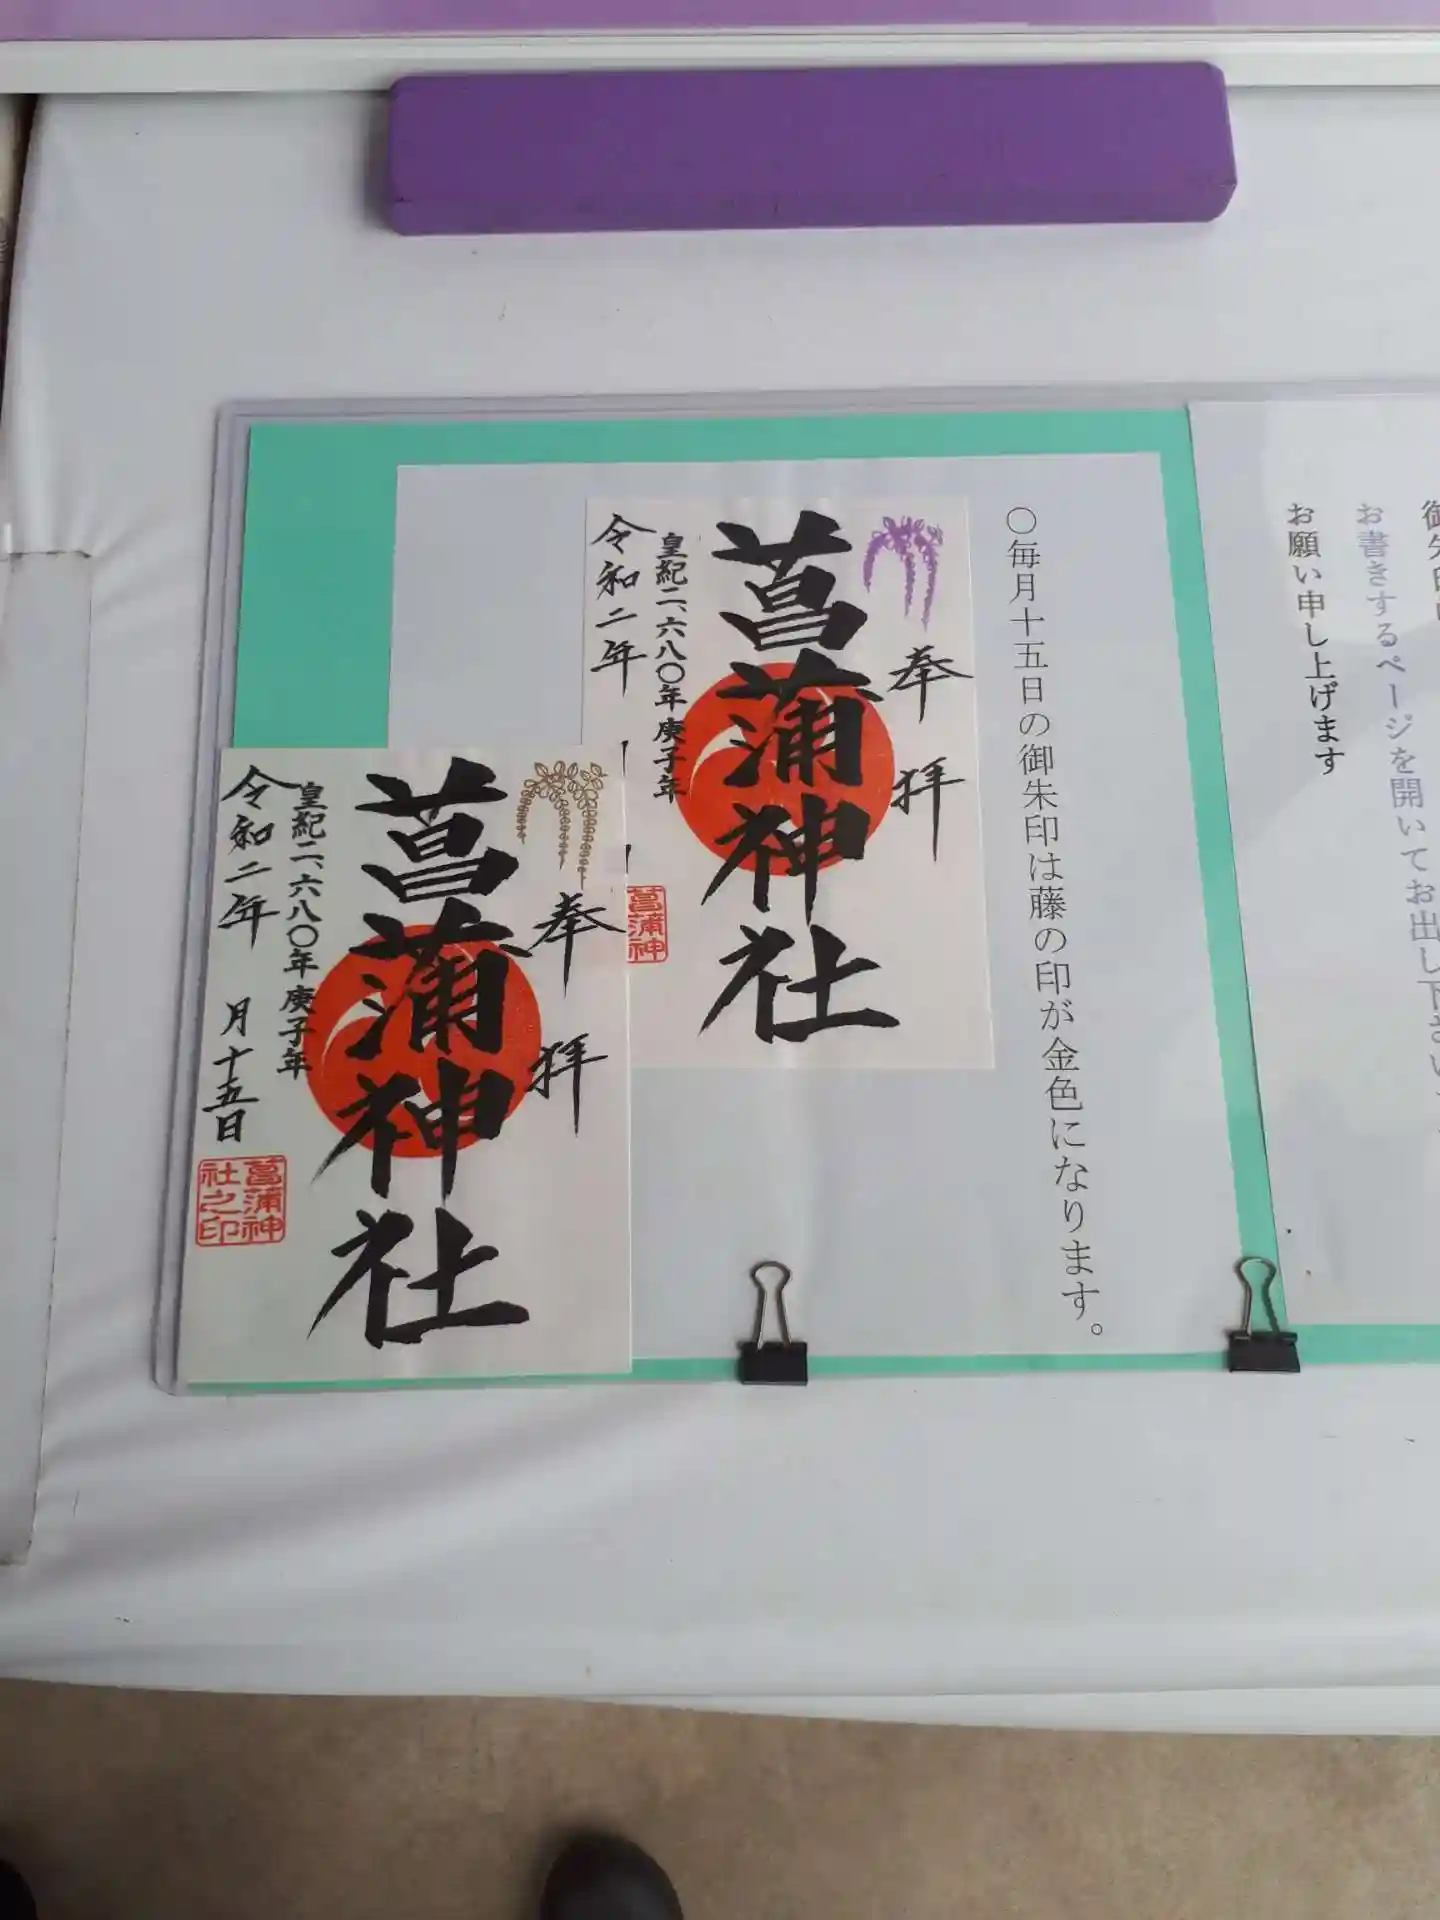 お書きするページを開いてお出し下さい
お願い申し上げます
〇毎月十五日の御朱印は藤の印が金色になります。
奉拝
菖蒲神社
皇紀二、六八〇年庚子年
令和二年
菖蒲神
奉拝
菖蒲神社
皇紀二、六八〇年庚子年
令和二年 月十五日
菖蒲神
社之印